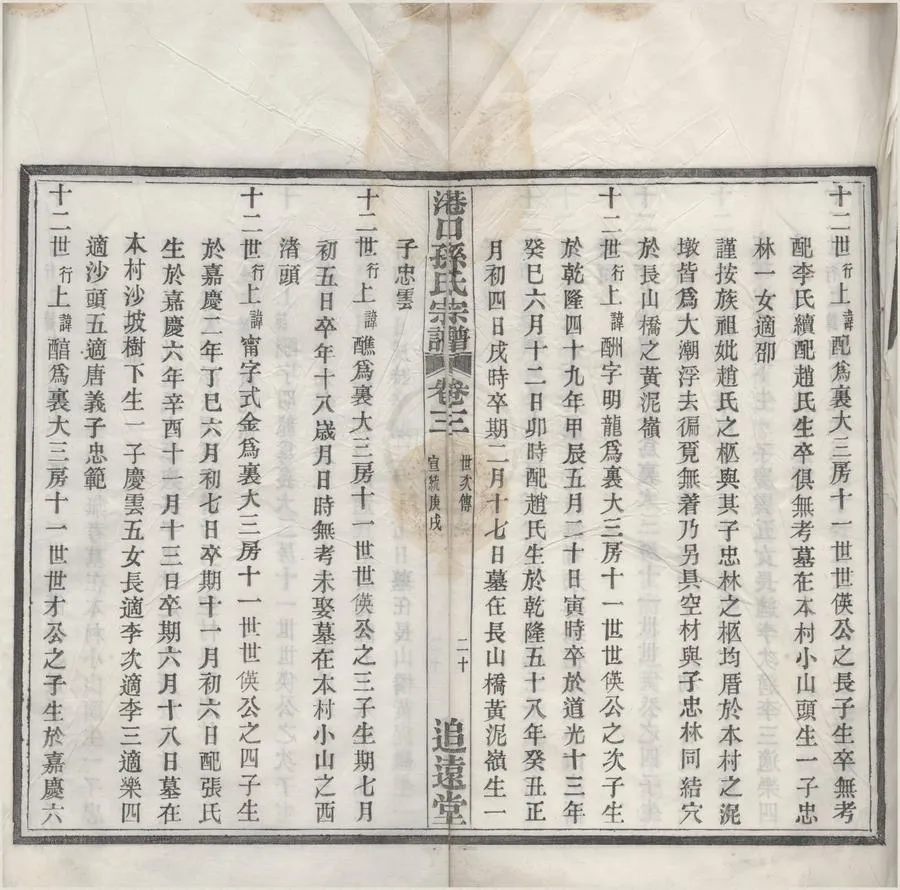 十二世行上諱配爲裏大三房十一世世偀公之長子生卒無考
配李氏續配趙氏生卒俱無考墓在本村小山頭生一子忠
林一女適邵
謹按族祖妣趙氏之柩與其子忠林之柩均厝於本村之泥
墩皆爲大潮浮去徧覓無着乃另具空材與子忠林同結穴
於長山橋之黃泥嶺
十二世行上諱酬字明龍爲裏大三房十一世世偀公之次子生
於乾隆四十九年甲辰五月二十日寅時卒於道光十三年
癸巳六月十二日卯時配趙氏生於乾隆五十八年癸丑正
月初四日戌時卒期二月十七日墓在長山橋黃泥嶺生一
子忠雲
港口孫氏宗譜 卷三 世次傳 宣統庚戌 二十 追遠堂
十二世行上諱醮爲裏大三房十一世世偀公之三子生期七月
初五日卒年十八歲月日時無考未娶墓在本村小山之西
渚頭
十二世行上諱甯字式金爲裏大三房十一世世偀公之四子生
於嘉慶二年丁巳六月初七日卒期十一月初六日配張氏
生於嘉慶六年辛酉十一月十三日卒期六月十八日墓在
本村沙坡樹下生一子慶雲五女長適李次適李三適樂四
適沙頭五適唐義子忠範
十二世行上諱醕爲裏大三房十一世世才公之子生於嘉慶六